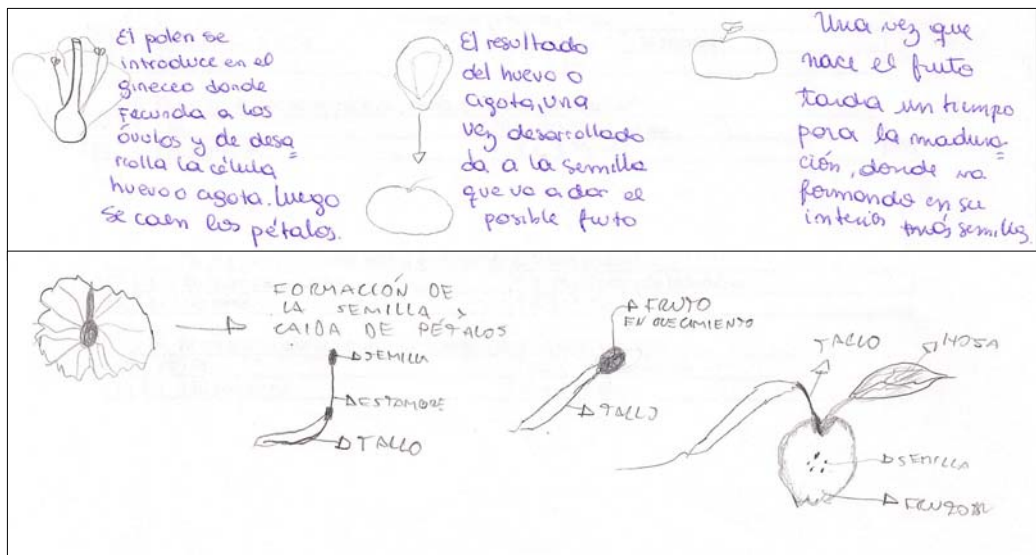 El polen se
introduce en el
gineceo donde
fecunda a los
óvulos y de desa
rrolla la célula
huevo o agota. Luego
se caen los pétalos.
El resultado
del huevo o
agota, una
vez desarrollado
da a la semilla
que va a dar el
posible fruto
Una vez que
nace el fruto
tarda un tiempo
para la madura
ción, donde va
formando en su
interior más semillas.
FORMACCIÓN DE
LA SEMILLA Y
CAIDA DE PÉTALOS
SEMILLA
ESTAMBRE
TALLO
FRUTO
EN CRECIMIENTO
TALLO
TALLO
HOJA
SEMILLA